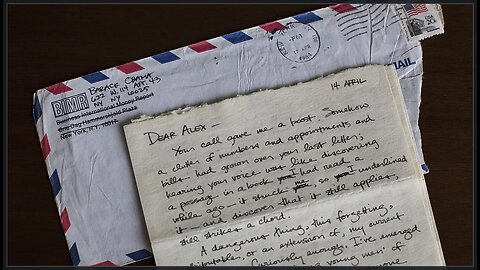 BARACK OBAMA
622 W. 114 APT. 43
NY NY 10025
BIMR
Business International Money Report
One Dag Hammarskjold Plaza
New York, N.Y. 10017
APR
MAIL
14 APRIL
DEAR ALEX –
Your call gave me a boost. Somehow
a clutter of numbers and appointments and
bills had grown over your last letter;
hearing your voice was like discovering
a passage in a book I had read a
while ago – it struck me, so I underlined
it – and discover that it still applies,
still strikes a chord.
A dangerous thing, this forgetting,
attributable, or an extension of, my current
Curiously enough, I've emerged
young men' of